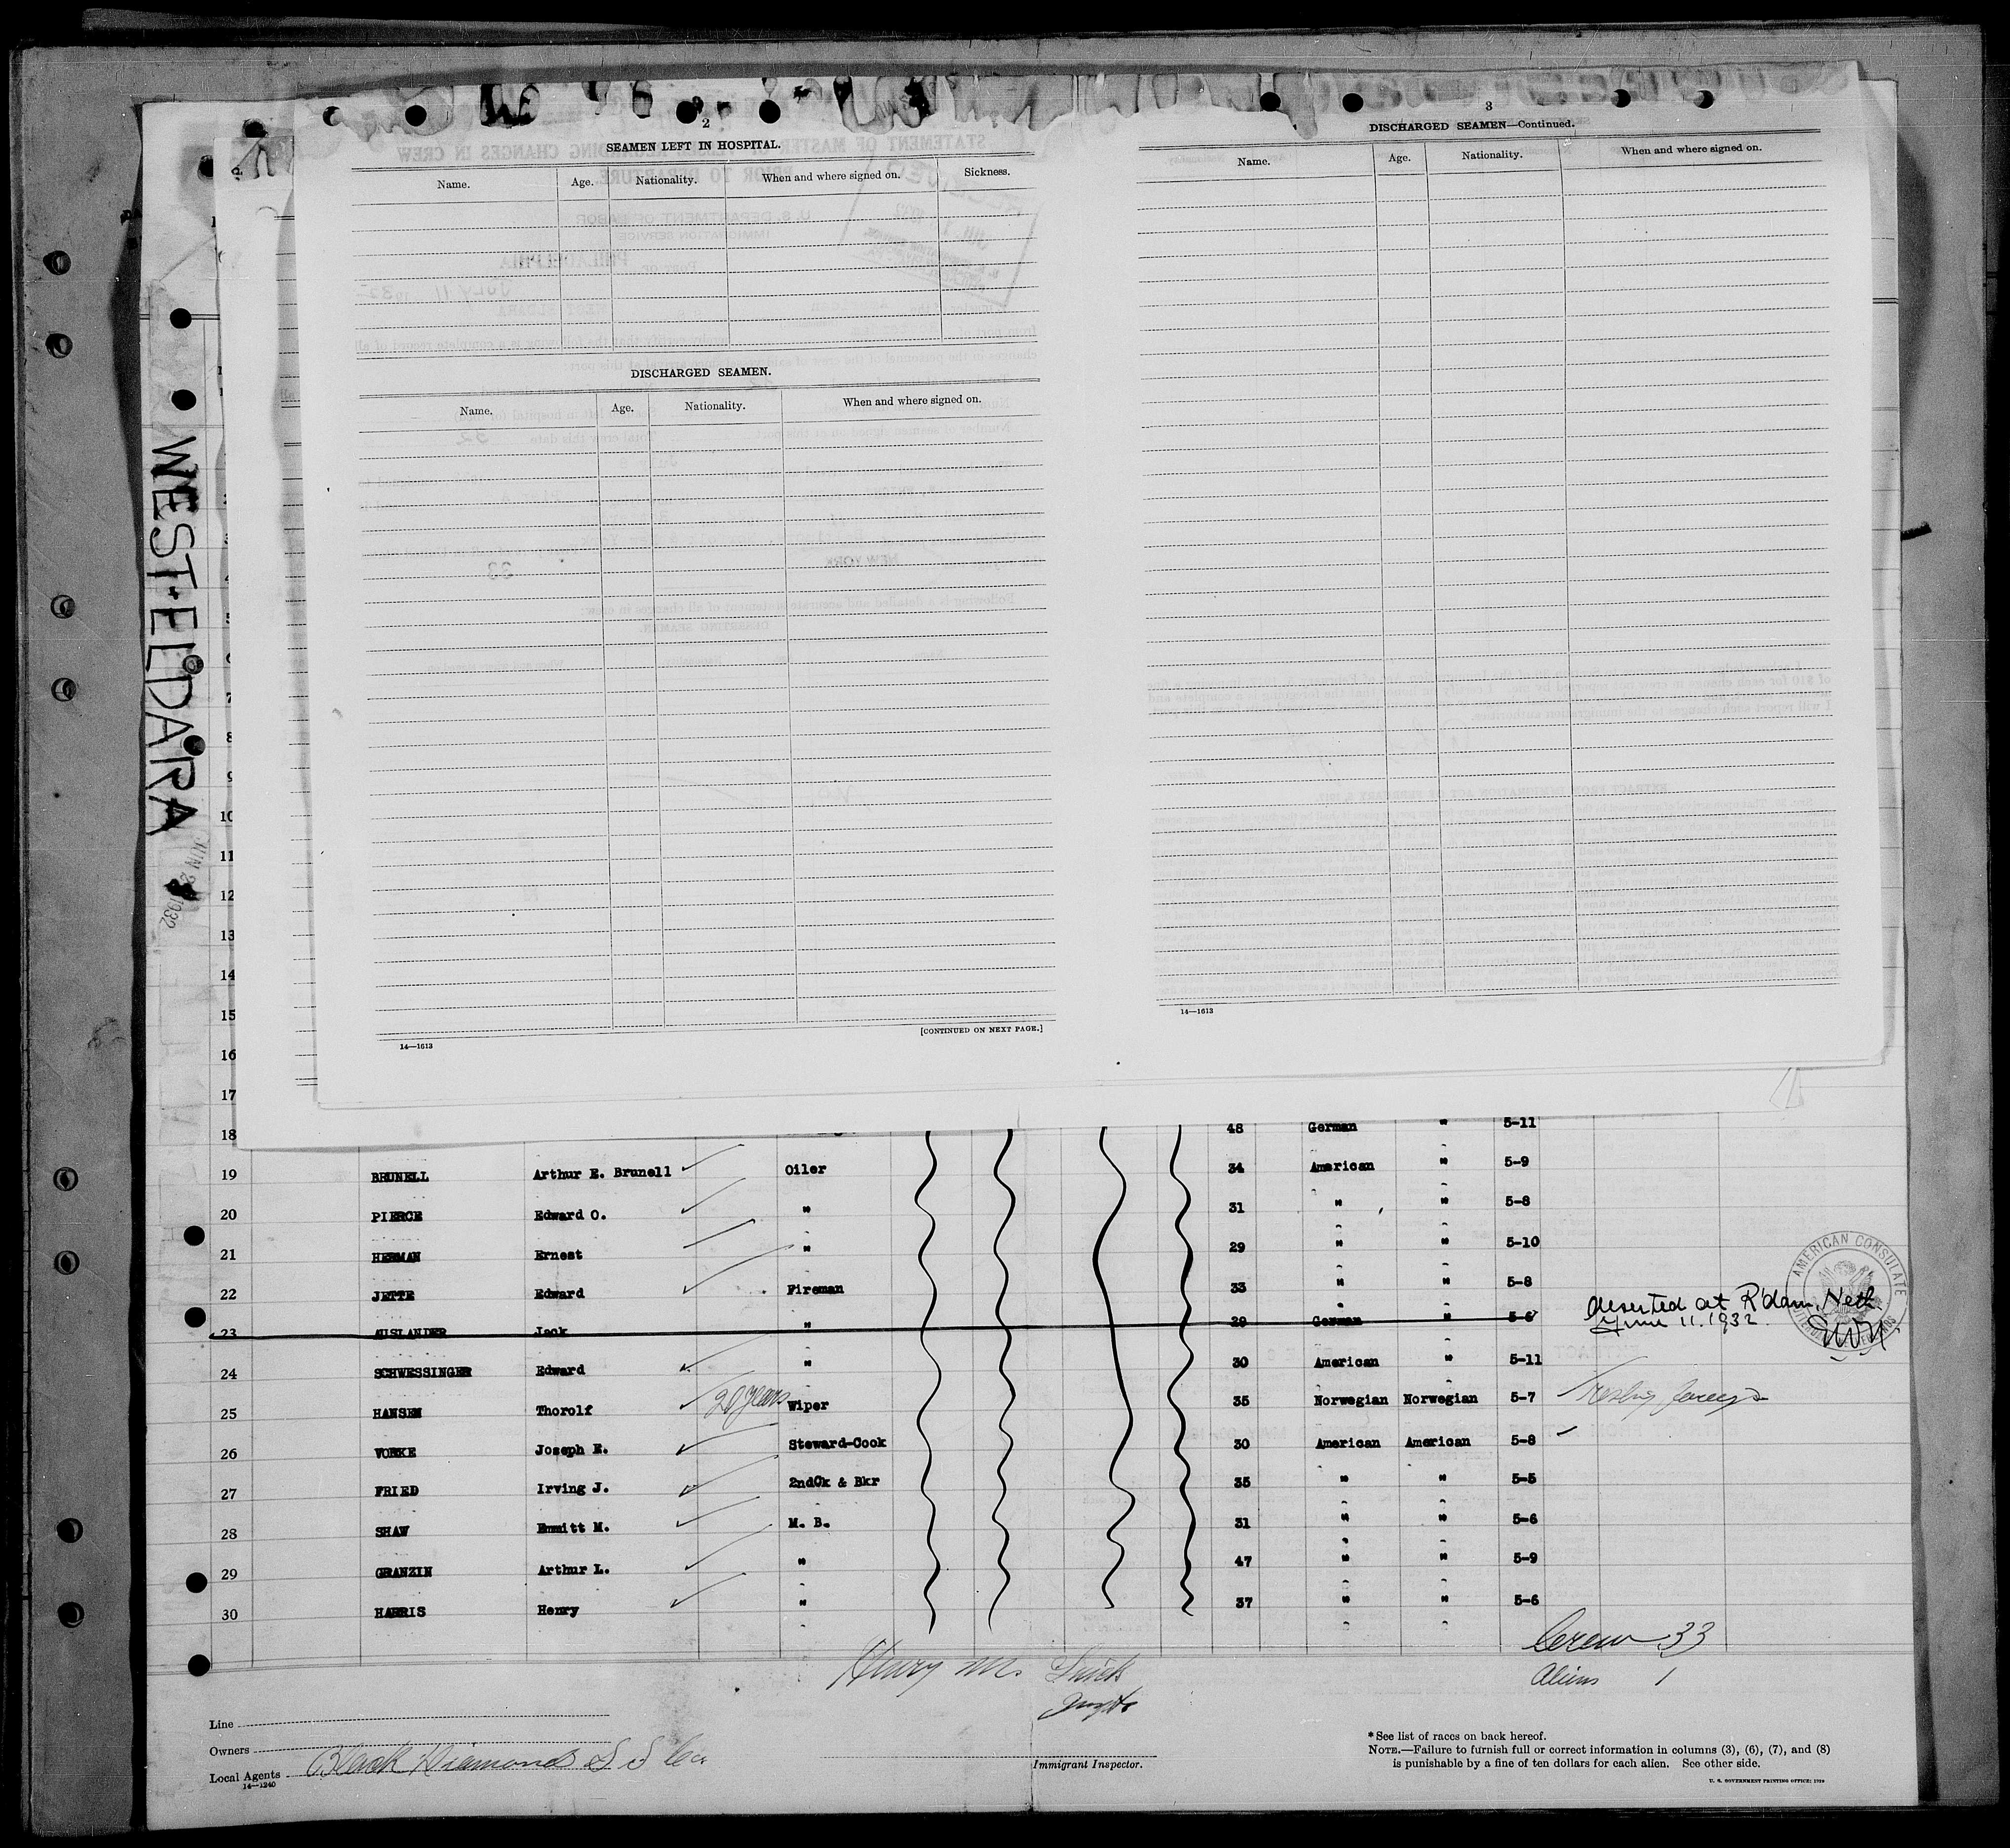 2
SEAMEN LEFT IN HOSPITAL.
Name. Age. Nationality. When and where signed on. Sickness.
DISCHARGED SEAMEN.
Name. Age. Nationality. When and where signed on.
[CONTINUED ON NEXT PAGE.]
14—1613
3
DISCHARGED SEAMEN—Continued.
Name. Age. Nationality. When and where signed on.
14—1613
WEST ELDARA
JUN 1932
7
8
10
11
12
13
14
15
16
17
18 48 German " 5-11
19 BRUNELL Arthur E. Brunell Oiler 34 American " 5-9
20 PIERCE Edward O. " 31 " " 5-8
21 HERMAN Ernest " 29 " " 5-10
22 JETTE Edward Fireman 33 " " 5-8
23 AUSLANDER Jack " 29 German " 5-6 deserted at R'dam, Neth.
June 11. 1932.
AMERICAN CONSULATE
24 SCHWESSINGER Edward " 30 American " 5-11
25 HANSEN Thorolf 20 years Wiper 35 Norwegian Norwegian 5-7
26 VORKE Joseph E. Steward-Cook 30 American American 5-8
27 FRIED Irving J. 2ndCk & Bkr 35 " " 5-5
28 SHAW Emmitt M. M. B. 31 " " 5-6
29 GRANZIN Arthur L. " 47 " " 5-9
30 HARRIS Henry " 37 " " 5-6
Crew 33
Aliens 1
Henry M.
Line
Owners
Local Agents Black Diamond S S Co
14—1240
Immigrant Inspector.
* See list of races on back hereof.
NOTE.—Failure to furnish full or correct information in columns (3), (6), (7), and (8)
is punishable by a fine of ten dollars for each alien. See other side.
U. S. GOVERNMENT PRINTING OFFICE: 1929